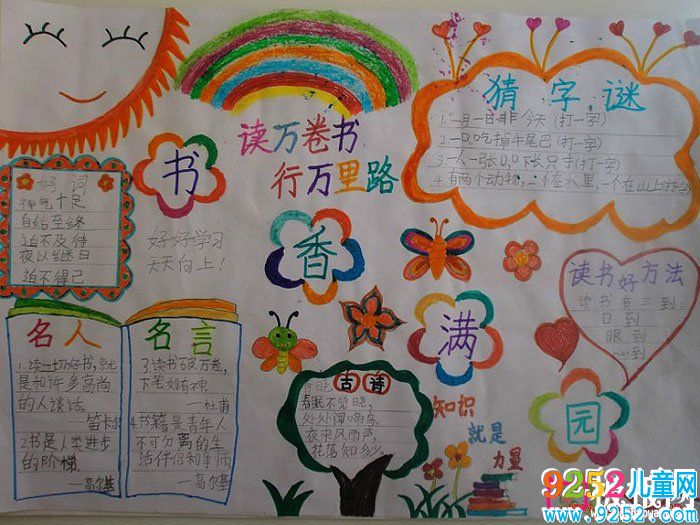 猜字谜
1.一月一日非今天(打一字)
2.一口吃掉牛尾巴(打一字)
3.一人一张口,口下长只手(打一字)
4.有两个动物,一个在水里,一个在山上(打一字)
读万卷书
行万里路
书
香
满
园
好词
神气十足
自始至终
迫不及待
夜以继日
迫不得已
好好学习
天天向上!
读书好方法
读书有三到:
口到
眼到
心到
名人
名言
1.读一切好书,就
是和许多高尚
的人谈话。
—笛卡尔
2.书是人类进步
的阶梯
—高尔基
3.读书破万卷,
下笔如有神。
—杜甫
4.书籍是青年人
不可分离的生
活伴侣和导师
—高尔基
古诗
春晓
春眠不觉晓,
处处闻啼鸟。
夜来风雨声,
花落知多少。
知识
就是
力量
9252儿童网
www.9252.com